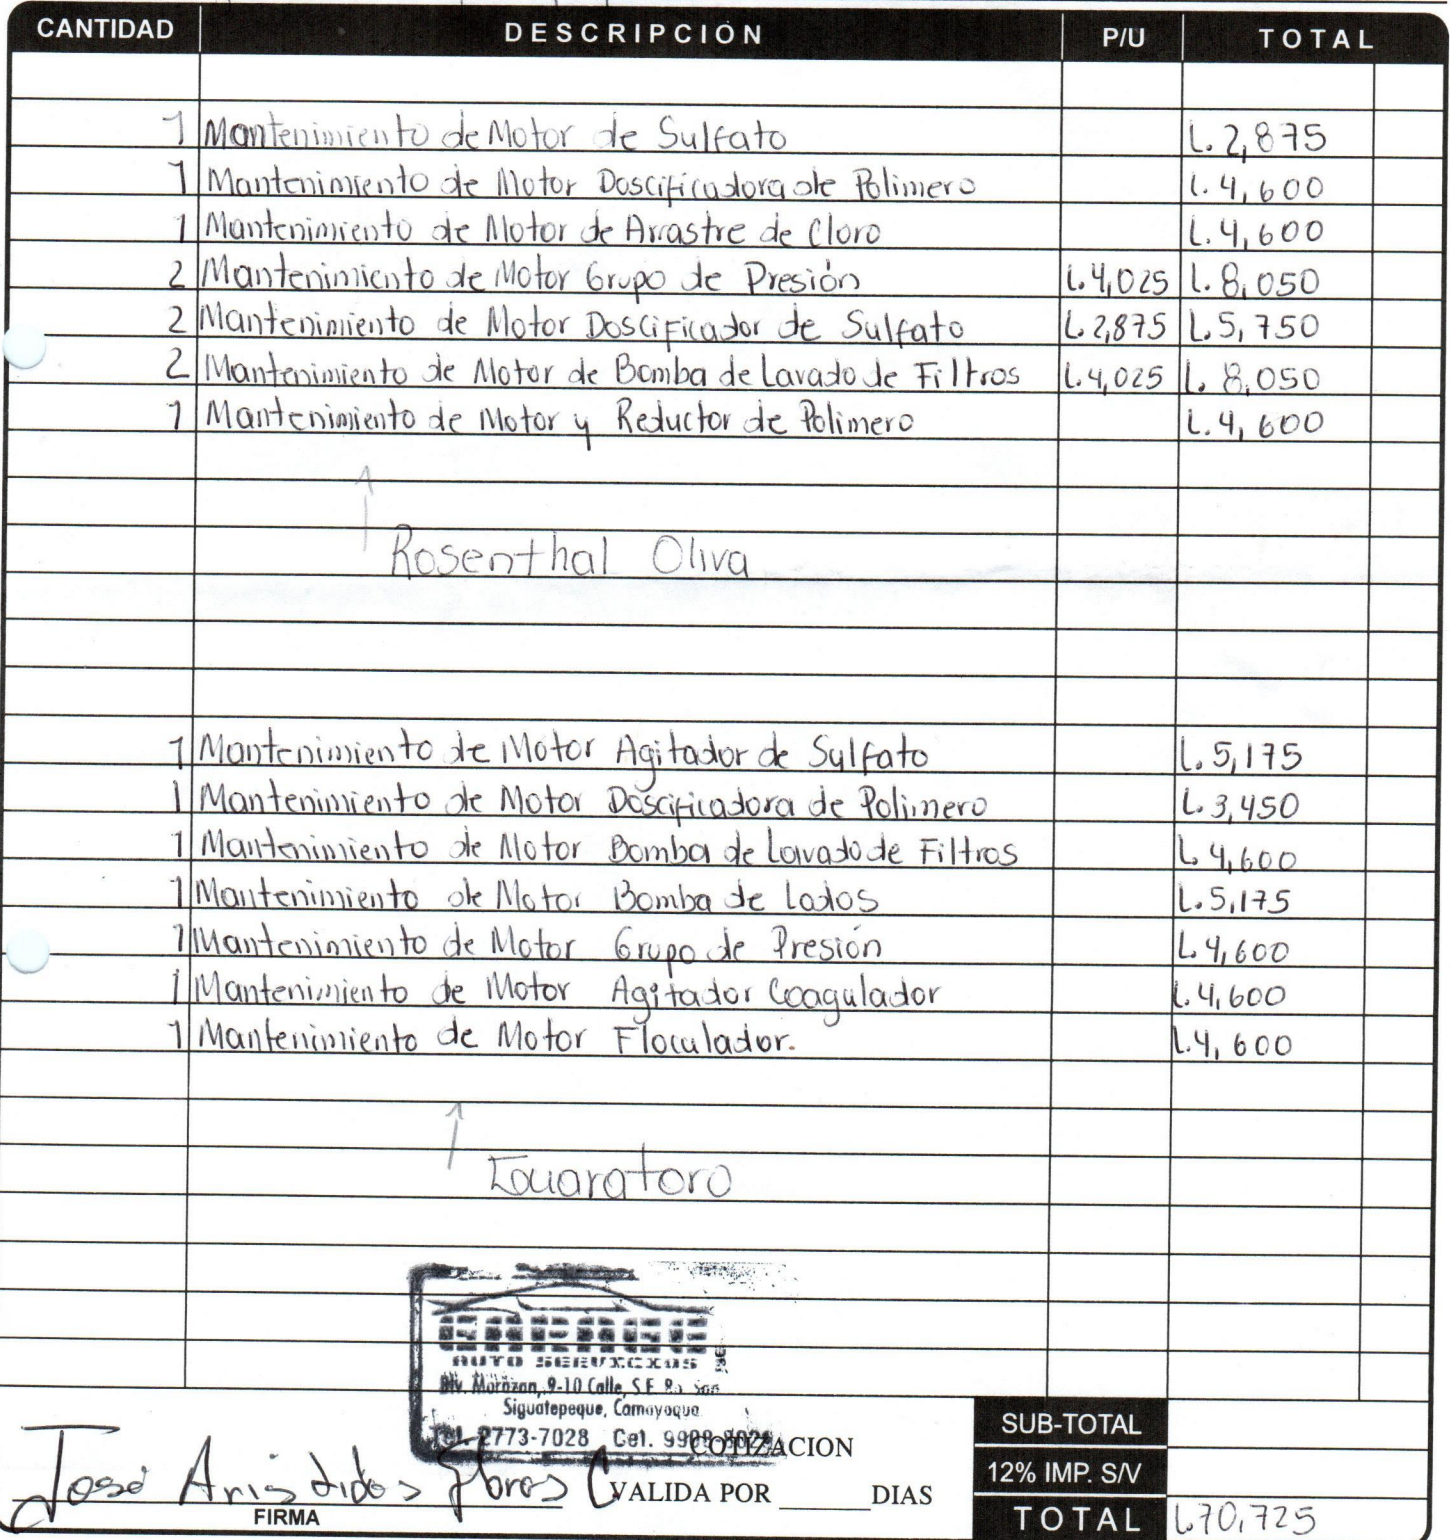 CANTIDAD DESCRIPCIÓN P/U TOTAL
1 Mantenimiento de Motor de Sulfato L. 2,875
1 Mantenimiento de Motor Doscificadora de Polimero L. 4,600
1 Mantenimiento de Motor de Arrastre de Cloro L. 4,600
2 Mantenimiento de Motor Grupo de Presión L. 4,025 L. 8,050
2 Mantenimiento de Motor Doscificador de Sulfato L. 2,875 L. 5,750
2 Mantenimiento de Motor de Bomba de Lavado de Filtros L. 4,025 L. 8,050
1 Mantenimiento de Motor y Reductor de Polimero L. 4,600
Rosenthal Oliva
1 Mantenimiento de Motor Agitador de Sulfato L. 5,175
1 Mantenimiento de Motor Doscificadora de Polimero L. 3,450
1 Mantenimiento de Motor Bomba de Lavado de Filtros L. 4,600
1 Mantenimiento de Motor Bomba de Lodos L. 5,175
1 Mantenimiento de Motor Grupo de Presión L. 4,600
1 Mantenimiento de Motor Agitador Coagulador L. 4,600
1 Mantenimiento de Motor Floculador. L. 4,600
AUTO SERVICIOS
Blv. Morazan, 9-10 Calle, S.E.
Siguatepeque, Comayagua
Tel. 2773-7028 Cel.
COTIZACION
VALIDA POR ______ DIAS
José
FIRMA
SUB-TOTAL
12% IMP. S/V
TOTAL L. 70,725